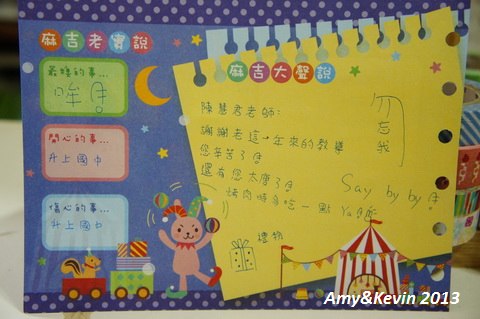 麻吉老實說
最糗的事...
哞!
開心的事...
升上國中
傷心的事...
升上國中
麻吉大聲說
勿忘我
陳慧君老師:
謝謝老這一年來的教導
您辛苦了!
還有您太瘦了!
烤肉時多吃一點
Say by by!
Ya!
禮物
Amy&Kevin 2013